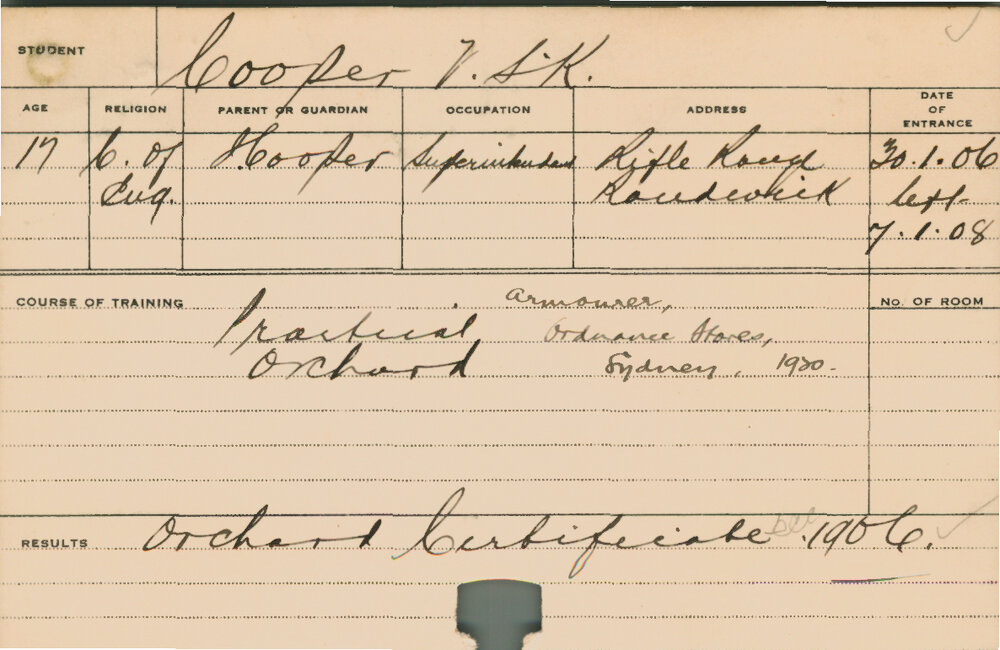 STUDENT Cooper V. S. K.
AGE RELIGION PARENT OR GUARDIAN OCCUPATION ADDRESS DATE OF ENTRANCE
17 C. of H. Cooper Superintendent Rifle Rang 30.1.06
Eng. Randwick left
7.1.08
COURSE OF TRAINING Armourer, No. OF ROOM
Practical Ordnance Stores,
Orchard Sydney, 1920.
RESULTS Orchard Certificate Dec 1906.